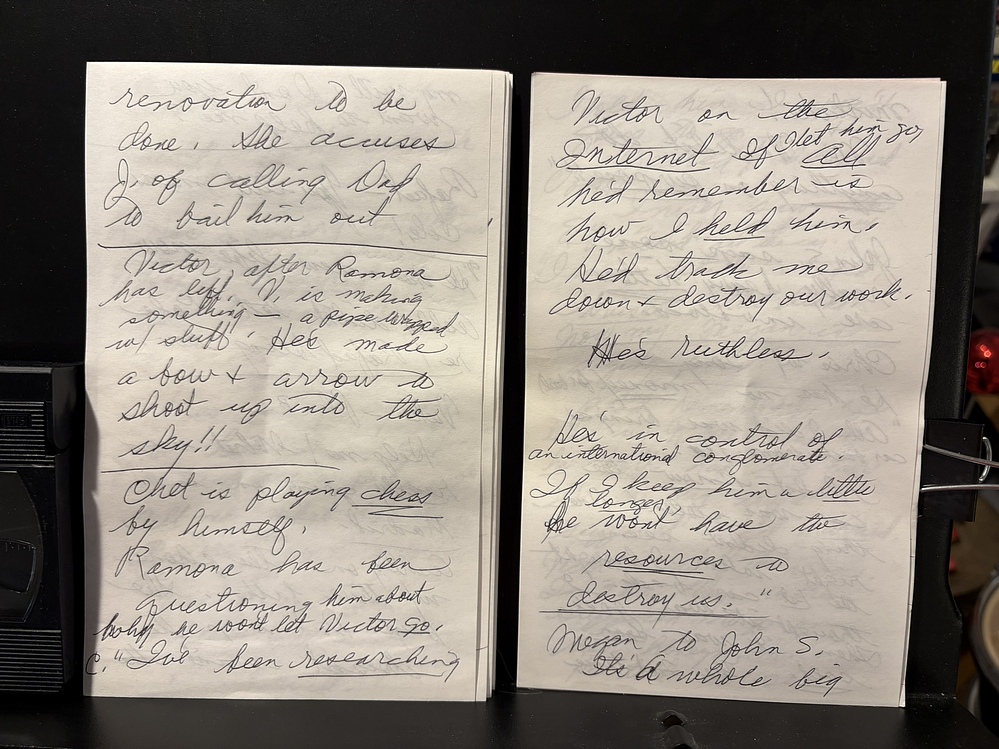 renovation to be
done. She accuses
J. of calling Dad
to bail him out
Victor, after Ramona
has left. V. is making
something — a pipe wrapped
w/ stuff. He's made
a bow & arrow to
shoot up into the
sky!!
Chet is playing chess
by himself.
Ramona has been
questioning him about
why he won't let Victor go.
C. "I've been researching
Victor on the
Internet If I let him go,
all
he'd remember is
how I held him.
He'd track me
down & destroy our work.
He's ruthless.
He's in control of
an international conglomerate.
If I keep him a little
longer,
he won't have the
resources to
destroy us."
Megan to John S.
It's a whole big